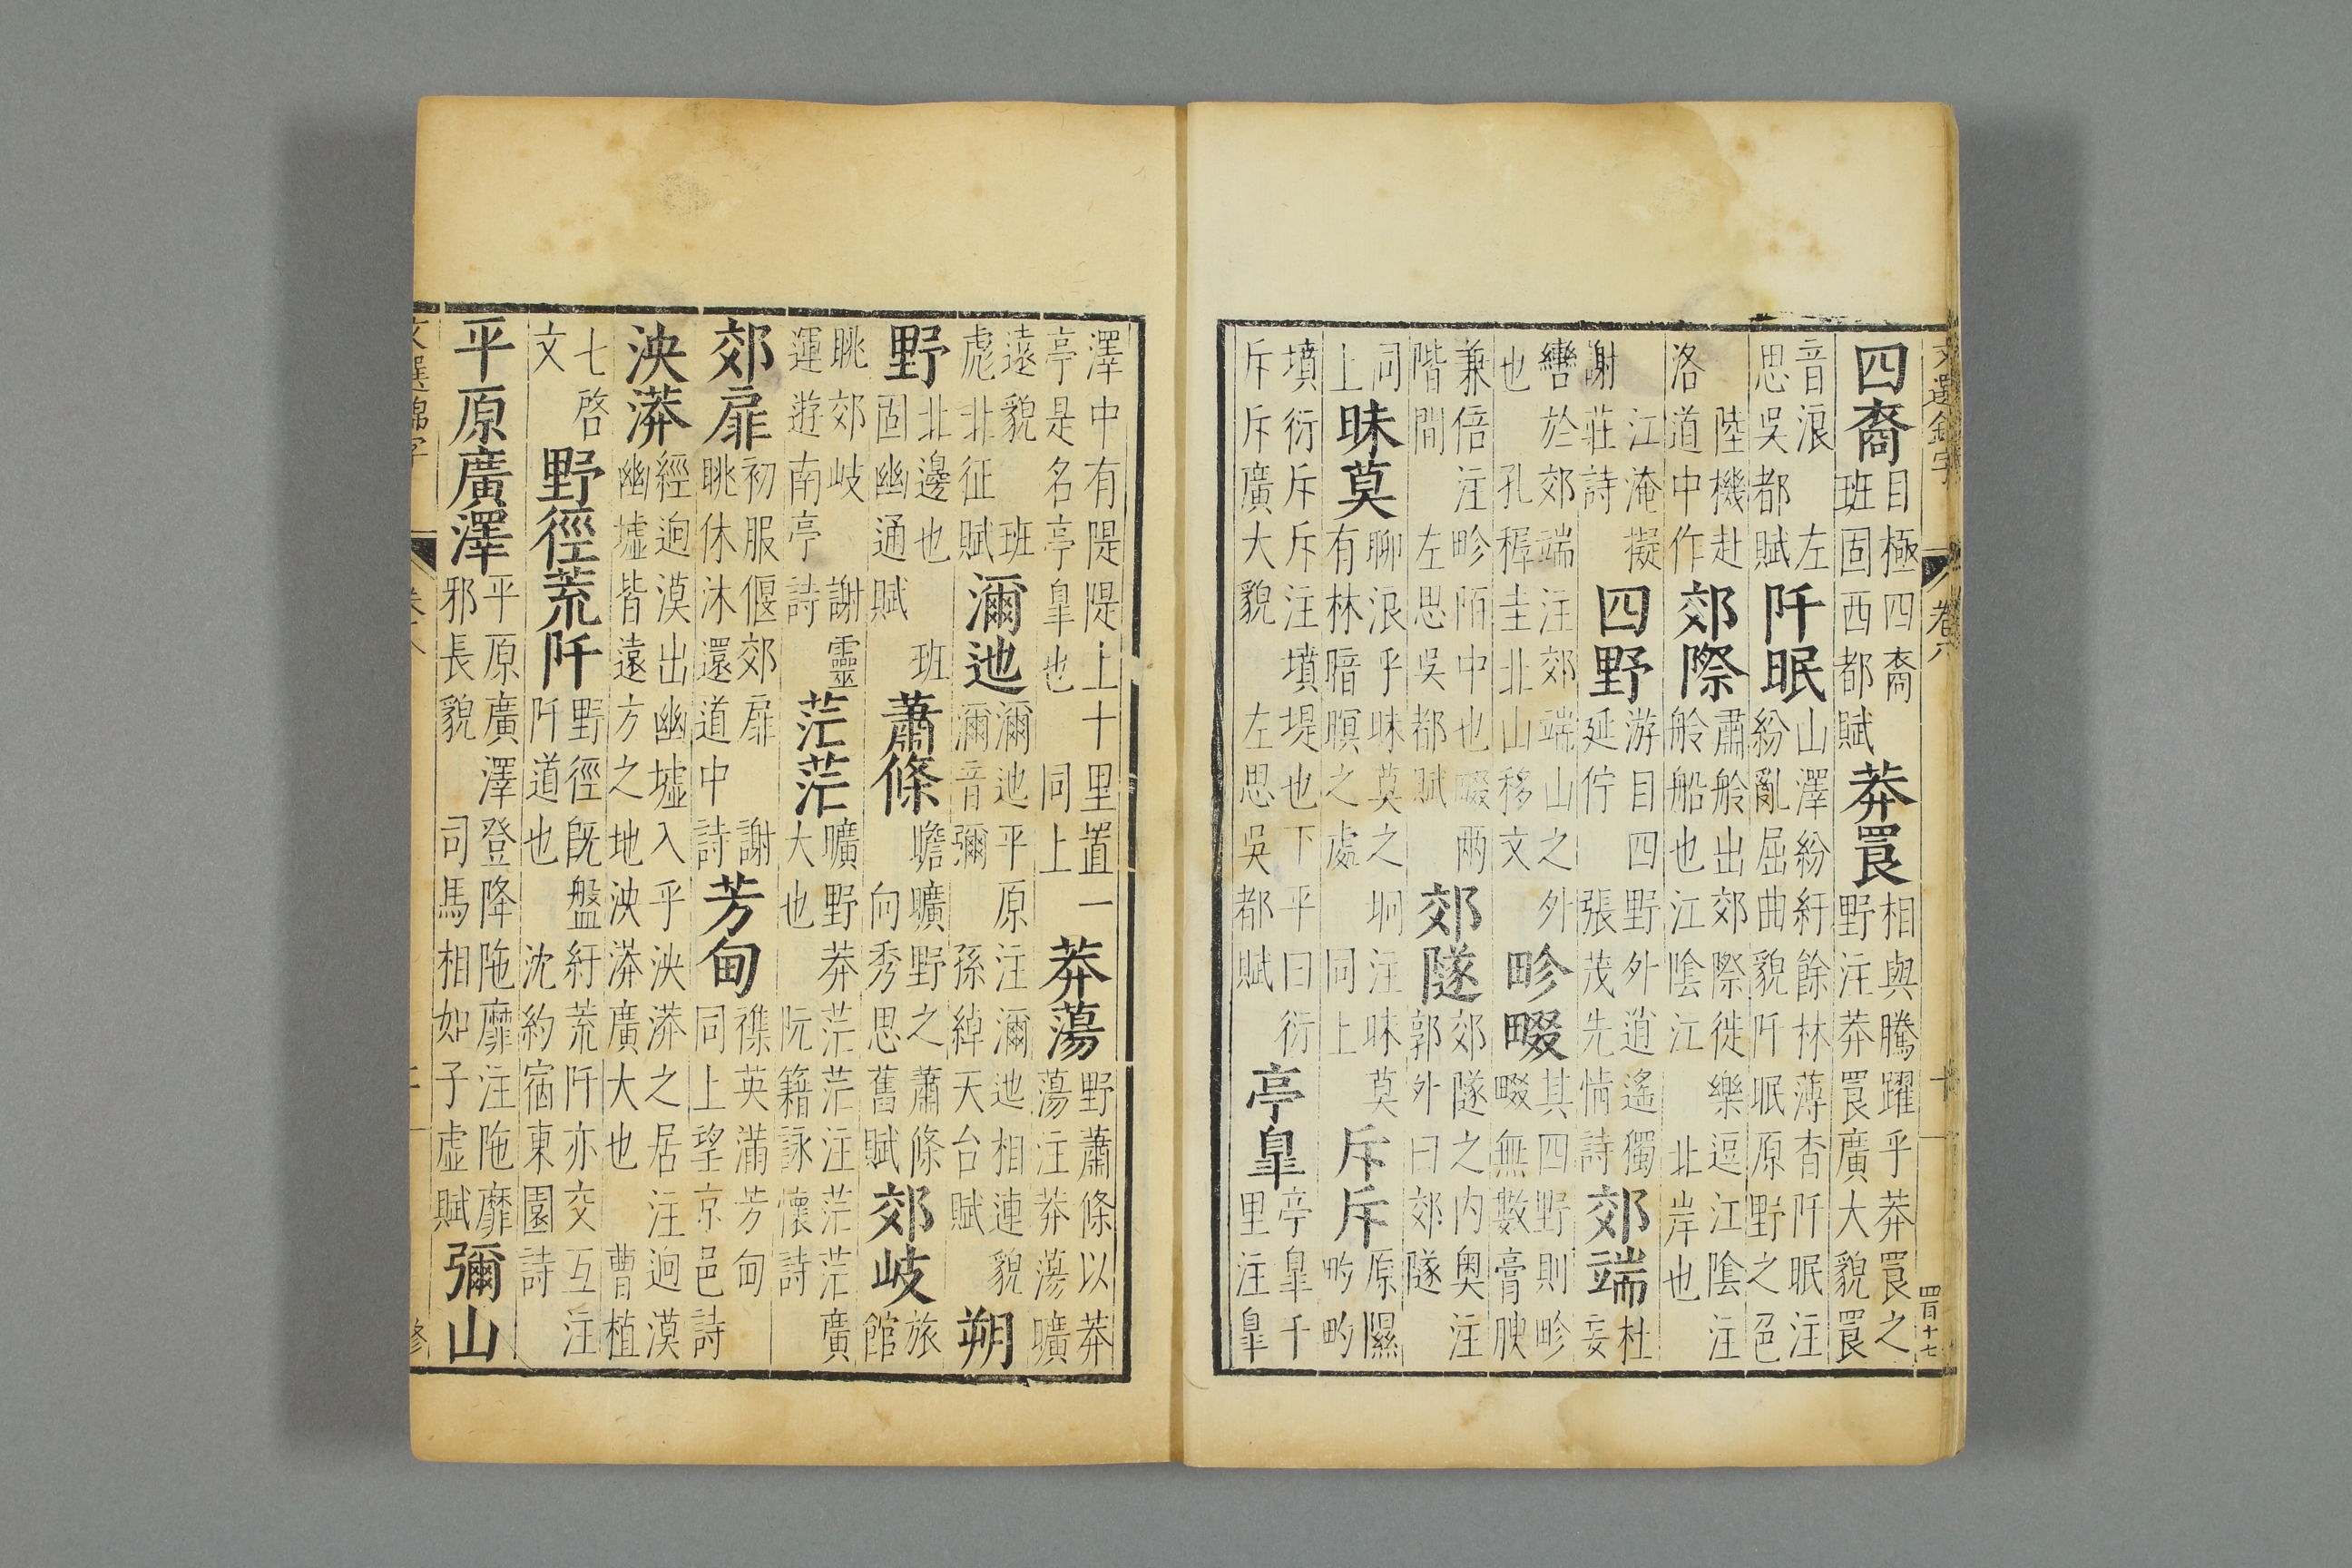 文選錦字 卷八 十一 四百十七
四裔目極四裔班固西都賦莽罠相與騰躍乎莽罠之野注莽罠廣大貌罠
音浪左思吳都賦阡眠山澤紛紆餘林薄杳阡眠注紛亂屈曲貌阡眠原野之色
陸機赴洛道中作郊際肅舲出郊際徙樂逗江陰注舲船也江陰江北岸也
江淹擬謝莊詩四野游目四野外逍遙獨延佇張茂先情詩郊端杜妄
轡於郊端注郊端山之外也孔稺圭北山移文畛畷其四野則畛畷無數膏腴
兼倍注畛陌中也畷兩階間左思吳都賦郊隧郊隧之内奥注郭外曰郊隧
同上昧莫聊浪乎昧莫之坰注昧莫有林暗暝之處同上斥斥原隰畇畇
墳衍斥斥注墳堤也下平曰衍斥斥廣大貌左思吳都賦亭皐亭皐千里注皐
澤中有隄隄上十里置一亭是名亭皐也同上莽蕩野蕭條以莽蕩注莽蕩曠
遠貌班彪北征賦濔迆濔迆平原注濔迆相連貌濔音彌孫綽天台賦朔
野北邊也班固幽通賦蕭條瞻曠野之蕭條向秀思舊賦郊岐旅館
眺郊岐謝靈運遊南亭詩茫茫曠野莽茫茫注茫茫廣大也阮籍詠懷詩
郊扉初服偃郊扉謝眺休沐還道中詩芳甸襍英滿芳甸同上望京邑詩
泱漭經逈漠出幽墟入乎泱漭之居注逈漠幽墟皆遠方之地泱漭廣大也曹植
七啓文野徑荒阡野徑既盤紆荒阡亦交互注阡道也沈約宿東園詩
平原廣澤平原廣澤登降陁靡注陁靡邪長貌司馬相如子虛賦彌山
文選錦字